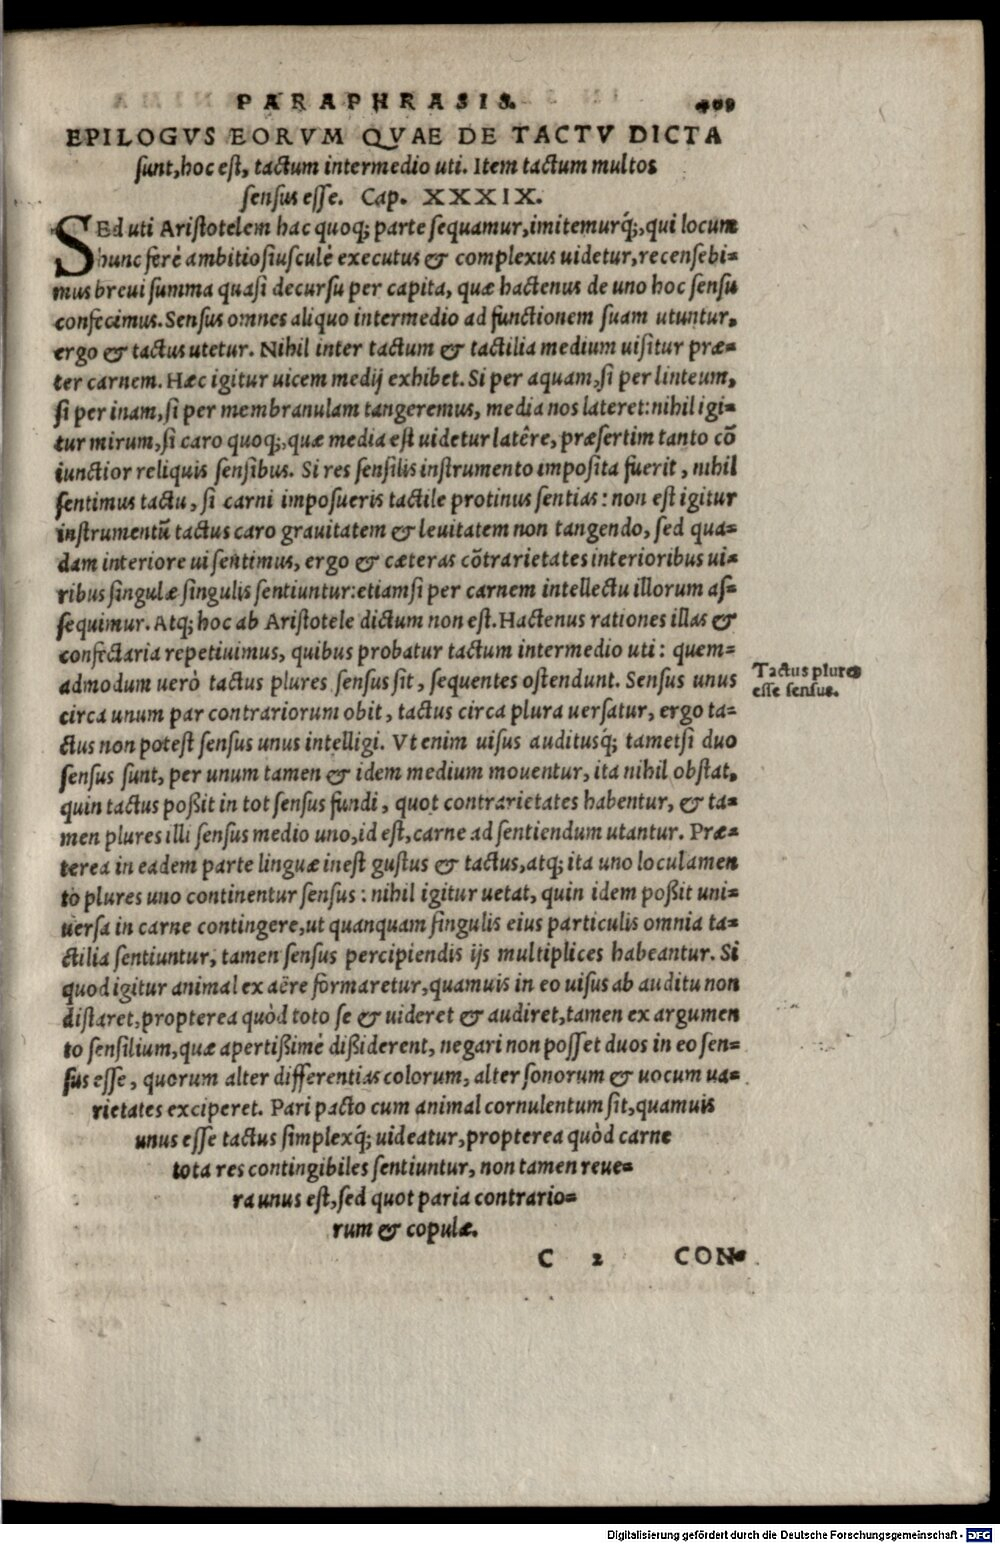 PARAPHRASIS. 409
EPILOGVS EORVM QVAE DE TACTV DICTA
sunt, hoc est, tactum intermedio uti. Item tactum multos
sensus esse. Cap. XXXIX.
SEd uti Aristotelem hac quoq; parte sequamur, imitemurq́;, qui locum
hunc ferè ambitiosiusculè executus & complexus uidetur, recensebi=
mus breui summa quasi decursu per capita, quæ hactenus de uno hoc sensu
confecimus. Sensus omnes aliquo intermedio ad functionem suam utuntur,
ergo & tactus utetur. Nihil inter tactum & tactilia medium uisitur præ=
ter carnem. Hæc igitur uicem medij exhibet. Si per aquam, si per linteum,
si per inam, si per membranulam tangeremus, media nos lateret: nihil igi=
tur mirum, si caro quoq;, quæ media est uidetur latêre, præsertim tanto cõ
iunctior reliquis sensibus. Si res sensilis instrumento imposita fuerit, nihil
sentimus tactu, si carni imposueris tactile protinus sentias: non est igitur
instrumentũ tactus caro grauitatem & leuitatem non tangendo, sed qua=
dam interiore ui sentimus, ergo & cæteras cõtrarietates interioribus ui=
ribus singulæ singulis sentiuntur: etiamsi per carnem intellectu illorum as=
sequimur. Atq; hoc ab Aristotele dictum non est. Hactenus rationes illas &
confectaria repetiuimus, quibus probatur tactum intermedio uti: quem=
admodum uerò tactus plures sensus sit, sequentes ostendunt. Sensus unus
circa unum par contrariorum obit, tactus circa plura uersatur, ergo ta=
ctus non potest sensus unus intelligi. Vt enim uisus auditusq́; tametsi duo
sensus sunt, per unum tamen & idem medium mouentur, ita nihil obstat,
quin tactus poßit in tot sensus fundi, quot contrarietates habentur, & ta=
men plures illi sensus medio uno, id est, carne ad sentiendum utantur. Præ=
terea in eadem parte linguæ inest gustus & tactus, atq; ita uno loculamen
to plures uno continentur sensus: nihil igitur uetat, quin idem poßit uni=
uersa in carne contingere, ut quanquam singulis eius particulis omnia ta=
ctilia sentiuntur, tamen sensus percipiendis ijs multiplices habeantur. Si
quod igitur animal ex aëre formaretur, quamuis in eo uisus ab auditu non
distaret, propterea quòd toto se & uideret & audiret, tamen ex argumen
to sensilium, quæ apertißimè dißiderent, negari non posset duos in eo sen=
sus esse, quorum alter differentias colorum, alter sonorum & uocum ua=
rietates exciperet. Pari pacto cum animal cornulentum sit, quamuis
unus esse tactus simplexq́; uideatur, propterea quòd carne
tota res contingibiles sentiuntur, non tamen reue=
ra unus est, sed quot paria contrario=
rum & copulæ.
C 2 CON=
Tactus plures
esse sensus.
Digitalisierung gefördert durch die Deutsche Forschungsgemeinschaft - DFG